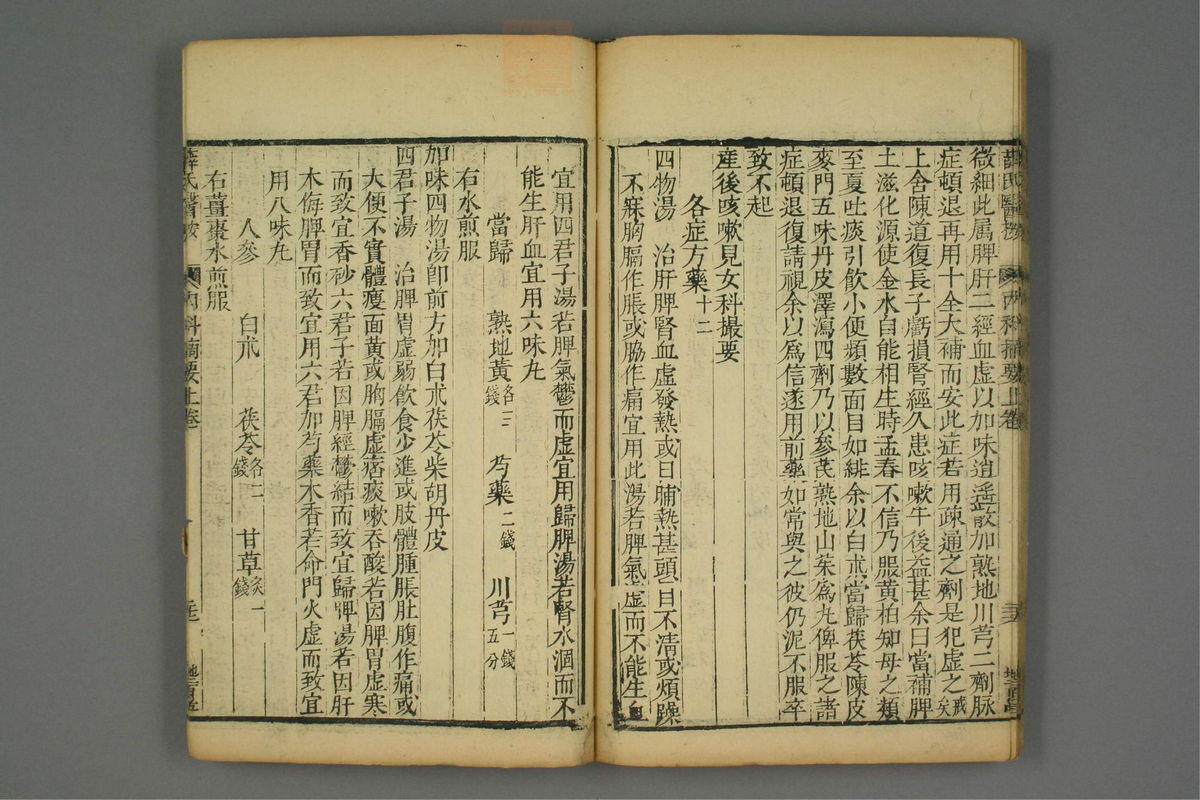 薛氏醫按 內科摘要上卷
微細此属脾肝二經血虛以加味逍遥散加熟地川芎二劑脉
症頓退再用十全大補而安此症若用疎通之劑是犯虛之戒矣
上舍陳道復長子虧損腎經久患咳嗽午後益甚余曰當補脾
土滋化源使金水自能相生時孟春不信乃服黄柏知母之類
至夏吐痰引飲小便頻數面目如緋余以白朮當歸茯苓陳皮
麥門五味丹皮澤瀉四劑乃以參芪熟地山茱爲丸俾服之諸
症頓退復請視余以爲信遂用前藥如常與之彼仍泥不服卒
致不起
産後咳嗽見女科撮要
各症方藥十二
四物湯 治肝脾腎血虛發熱或日晡熱甚頭目不清或煩躁
不寐胸膈作脹或脇作痛宜用此湯若脾氣虛而不能生血
宜用四君子湯若脾氣鬱而虛宜用歸脾湯若腎水涸而不
能生肝血宜用六味丸
當歸 熟地黃各三錢 芍藥二錢 川芎一錢五分
右水煎服
加味四物湯卽前方加白朮茯苓柴胡丹皮
四君子湯 治脾胃虛弱飲食少進或肢體腫脹肚腹作痛或
大便不實體瘦面黃或胸膈虛痞痰嗽吞酸若因脾胃虛寒
而致宜香砂六君子若因脾經鬱結而致宜歸脾湯若因肝
木侮脾胃而致宜用六君加芍藥木香若命門火虛而致宜
用八味丸
人參 白朮 茯苓各二錢 甘草炙一錢
右薑棗水煎服
薛氏醫按 內科摘要上卷